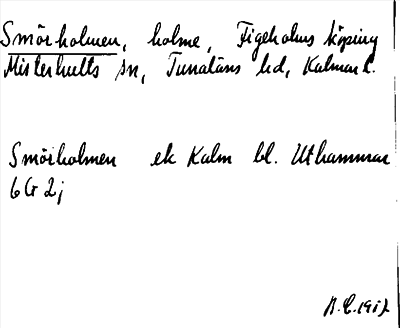 Smörholmen, holme, Figeholms köping
Misterhults sn, Tunaläns hd, Kalmar l.
Smörholmen ek Kalm bl. Uthammar
6 G 2j